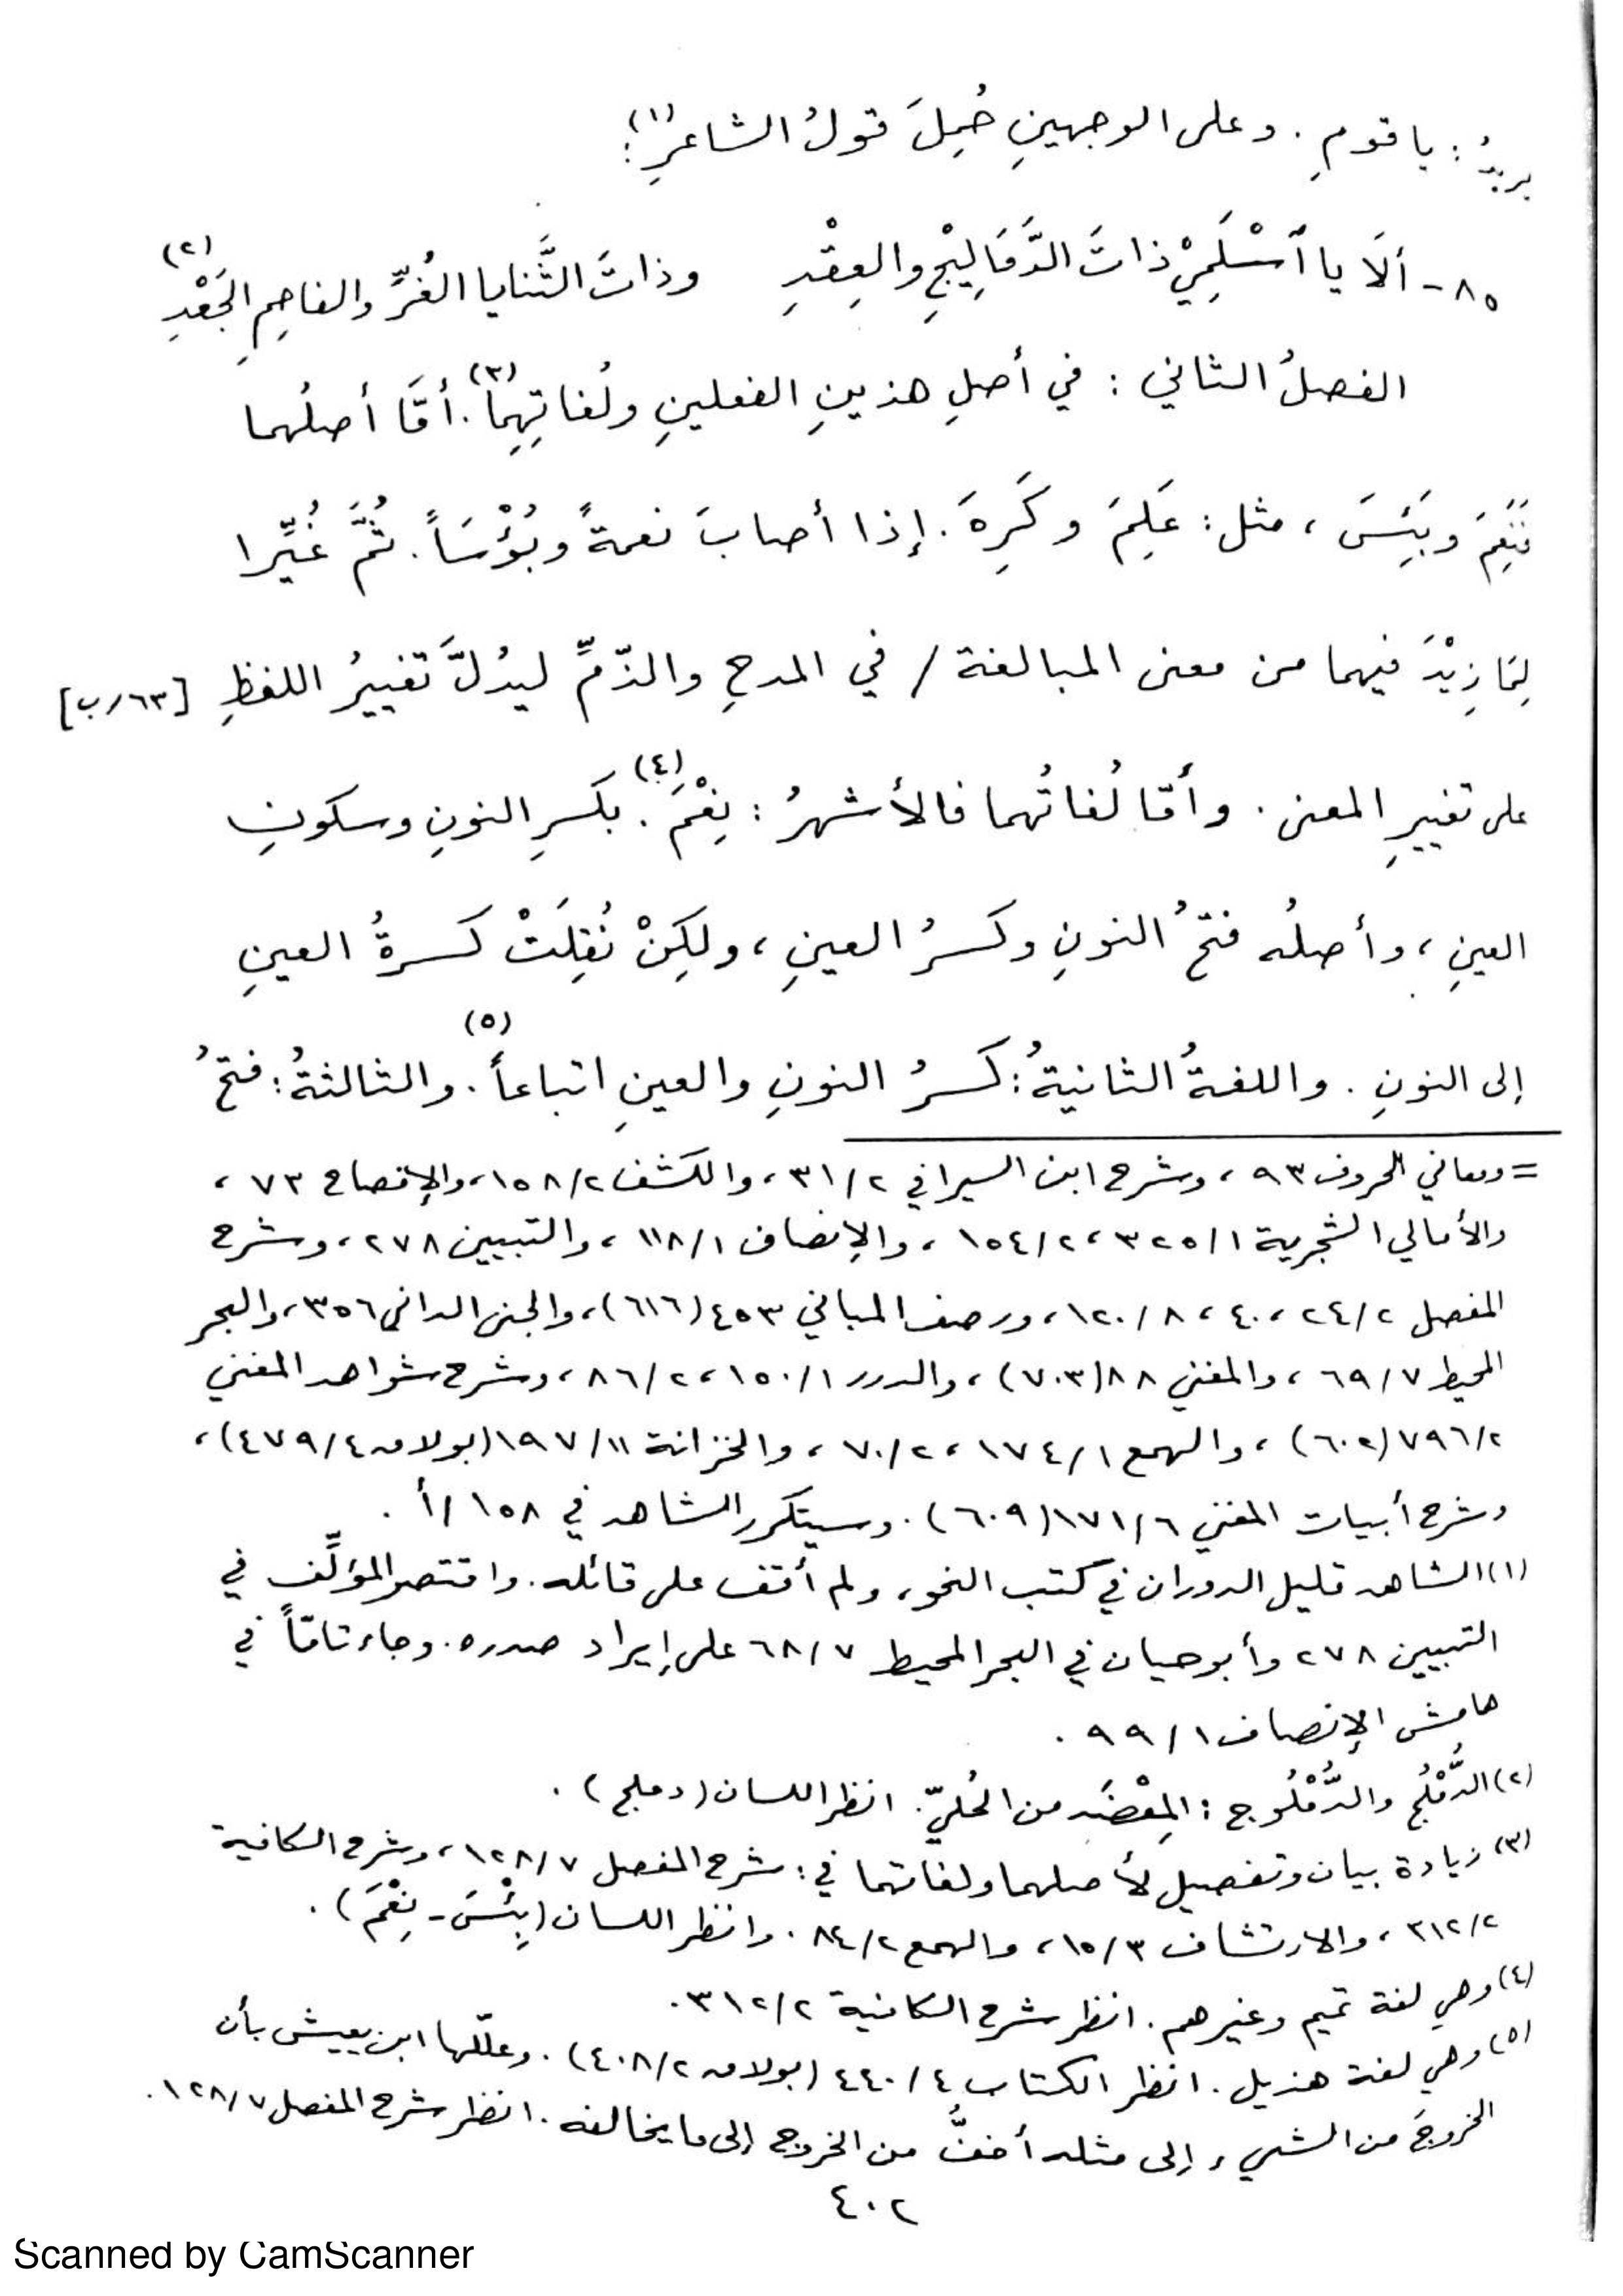 يريدُ : يا قومِ . وعلى الوجهينِ حُمِلَ قولُ الشاعرِ(١):
٨٥- ألَا يا ٱسْلَمِيْ ذاتَ الدَّمَالِيْجِ والعِقْدِ وذاتَ الثَّنايا الغُرِّ والفاحِمِ الجَعْدِ(٢)
الفصلُ الثاني : في أصلِ هذينِ الفعلينِ ولُغاتِهِما(٣). أمَّا أصلُهما
فنَعِمَ وبَئِسَ ، مثل : عَلِمَ وكَرِهَ . إذا أصابَ نعمةً وبُؤْسَاً . ثُمَّ غُيِّرا
لِمَا زِيْدَ فيهما من معنى المبالغة / في المدحِ والذّمِّ ليدُلَّ تغييرُ اللفظِ [٦٣/ب]
على تغييرِ المعنى . وأمّا لُغاتُهما فالأشهرُ : نِعْمَ(٤). بكَسرِ النونِ وسكونِ
العينِ ، وأصلُه فتحُ النونِ وكسرُ العينِ ، ولكِنْ نُقِلَتْ كَسرةُ العينِ
إلى النونِ . واللغةُ الثانيةُ : كَسرُ النونِ والعينِ اتباعاً(٥). والثالثةُ : فتحُ
= ومعاني الحروف ٩٣ ، وشرح ابن السيرافي ٣١/٢ ، والكشف ١٥٨/٢ ، والإفصاح ٧٣ ،
والأمالي الشجرية ٣٢٥/١ ، ١٥٤/٢ ، والإنصاف ١١٨/١ ، والتبيين ٢٧٨ ، وشرح
المفصل ٢٤/٢ ، ٤٠ ، ١٢٠/٨ ، ورصف المباني ٤٥٣ (٦١٦) ، والجنى الداني ٣٥٦ ، والبحر
المحيط ٦٩/٧ ، والمغني ٨٨ (٧٠٣) ، والدرر ١٥٠/١ ، ٨٦/٢ ، وشرح شواهد المغني
٧٩٦/٢ (٦٠٢) ، والهمع ١٧٤/١ ، ٧٠/٢ ، والخزانة ١٩٧/١١ (بولاق ٤٧٩/٤) ،
وشرح أبيات المغني ١٧١/٦ (٦٠٩) . وسيتكرر الشاهد في ١٥٨/أ .
(١) الشاهد قليل الدوران في كتب النحو ، ولم أقف على قائله . واقتصر المؤلِّف في
التبيين ٢٧٨ وأبو حيان في البحر المحيط ٦٨/٧ على إيراد صدره . وجاء تامّاً في
هامش الإنصاف ٩٩/١ .
(٢) الدُّمْلُج والدُّمْلُوج : المِعْضَد من الحُليّ . انظر اللسان (دملج) .
(٣) زيادة بيان وتفصيل لأصلهما ولغاتهما في : شرح المفصل ١٢٨/٧ ، وشرح الكافية
٣١٢/٢ ، والارتشاف ١٥/٣ ، والهمع ٨٤/٢ . وانظر اللسان (بِئْسَ - نِعْمَ) .
(٤) وهي لغة تميم وغيرهم . انظر شرح الكافية ٣١٢/٢ .
(٥) وهي لغة هذيل . انظر الكتاب ٤٤٠/٤ (بولاق ٤٠٨/٢) . وعلّلها ابن يعيش بأن
الخروجَ من الشيء إلى مثله أخفُّ من الخروج إلى ما يخالفه . انظر شرح المفصل ١٢٨/٧ .
٤٠٢
Scanned by CamScanner